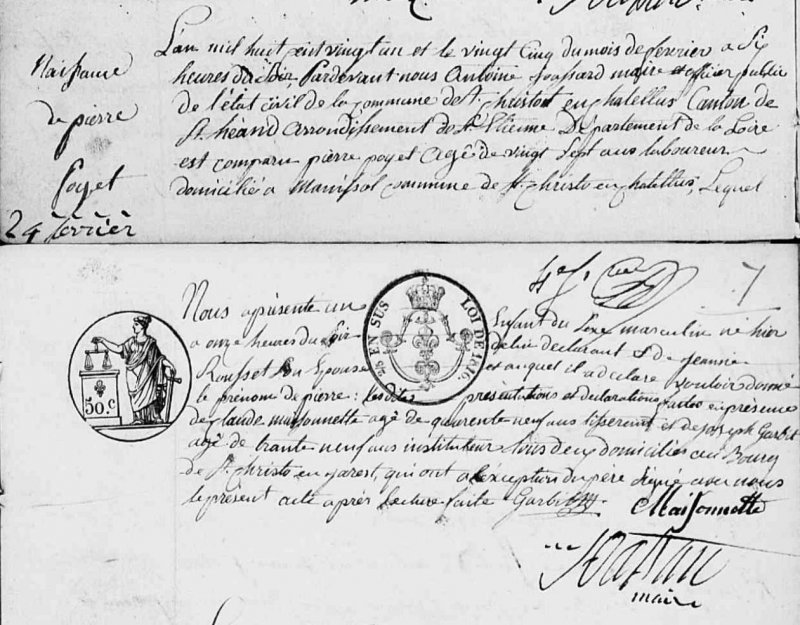 Naissance
de pierre
poyet
24 février
L'an mil huit cent vingt un et le vingt cinq du mois de fevrier a six
heures du soir, Pardevant nous Antoine maire et officier public
de l'état civil de la commune de St christo en chatellus Canton de
St héand arrondissement de St Etienne Département de la Loire
est comparu pierre poyet agé de vingt sept ans laboureur
domicilié à Manissol commune de St christo en chatellus, Lequel
7
Nous a présenté un Enfant du sexe masculin né hier
a onze heures du soir de lui declarant & de jeanne
Rousset son Epouse et auquel il a declaré vouloir donné
le prénom de pierre : les dites présentations et declarations faites en présence
de claude maisonnette agé de quarente neuf ans tisserent et de joseph Garbit
agé de trante neuf ans instituteur tous deux domiciliés au Bourg
de St christo en jarest, qui ont a l'exception du père signé avec nous
le présent acte après lecture faite Garbit
Maisonnette
maire
50 C
EN SUS
LOI DE 1816.